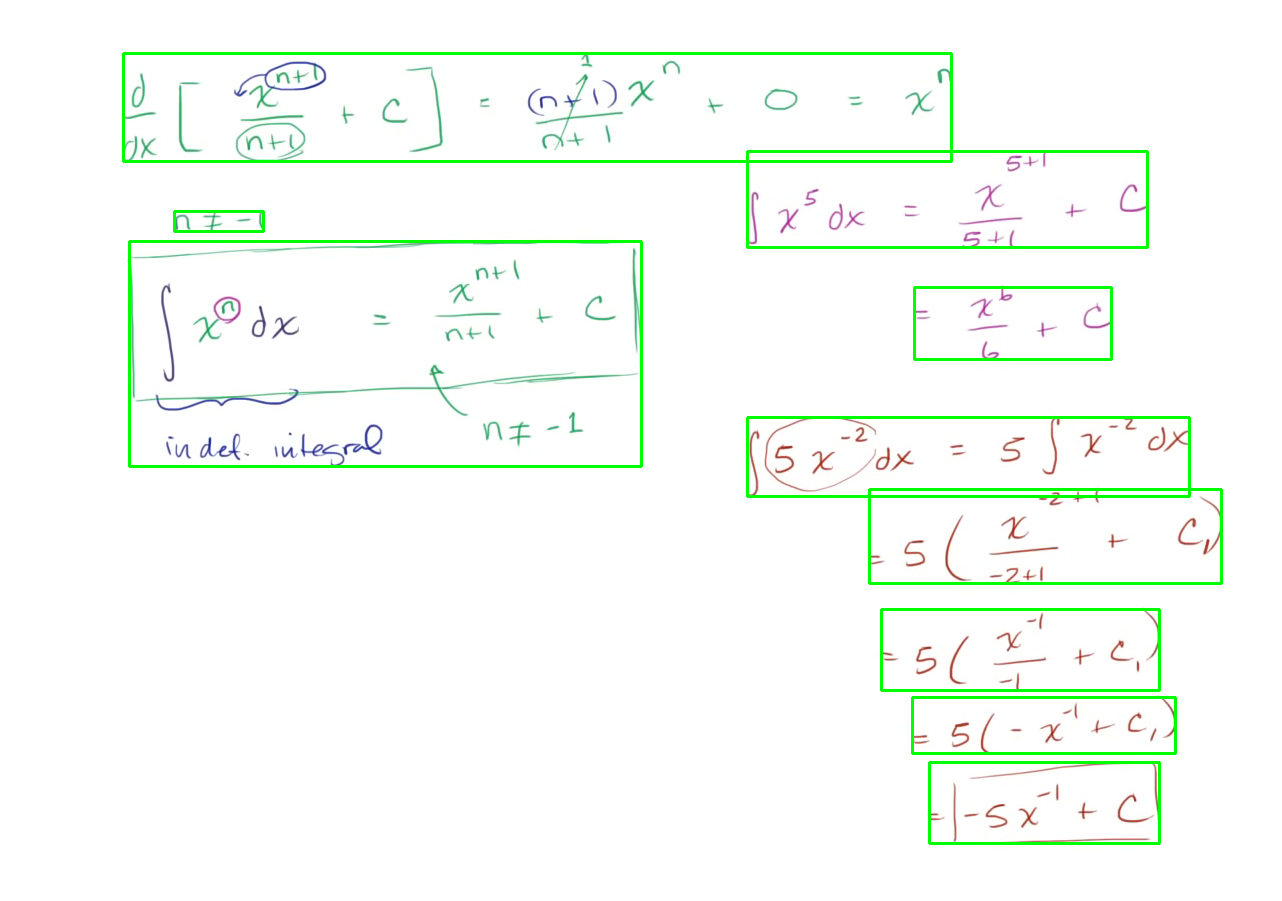 d/dx [ x^(n+1)/(n+1) + C ] = (n+1)x^n/(n+1) 1 + 0 = x^n
n ≠ -1
∫ x^n dx = x^(n+1)/(n+1) + C
n ≠ -1
indef. integral
∫ x^5 dx = x^(5+1)/(5+1) + C
= x^6/6 + C
∫ 5x^(-2) dx = 5 ∫ x^(-2) dx
= 5 ( x^(-2+1)/(-2+1) + C₁ )
= 5 ( x^(-1)/(-1) + C₁ )
= 5 ( -x^(-1) + C₁ )
= -5x^(-1) + C